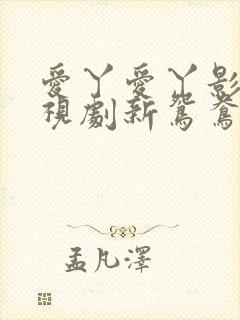 愛丫愛丫影
視劇新鴛鴦
孟凡澤